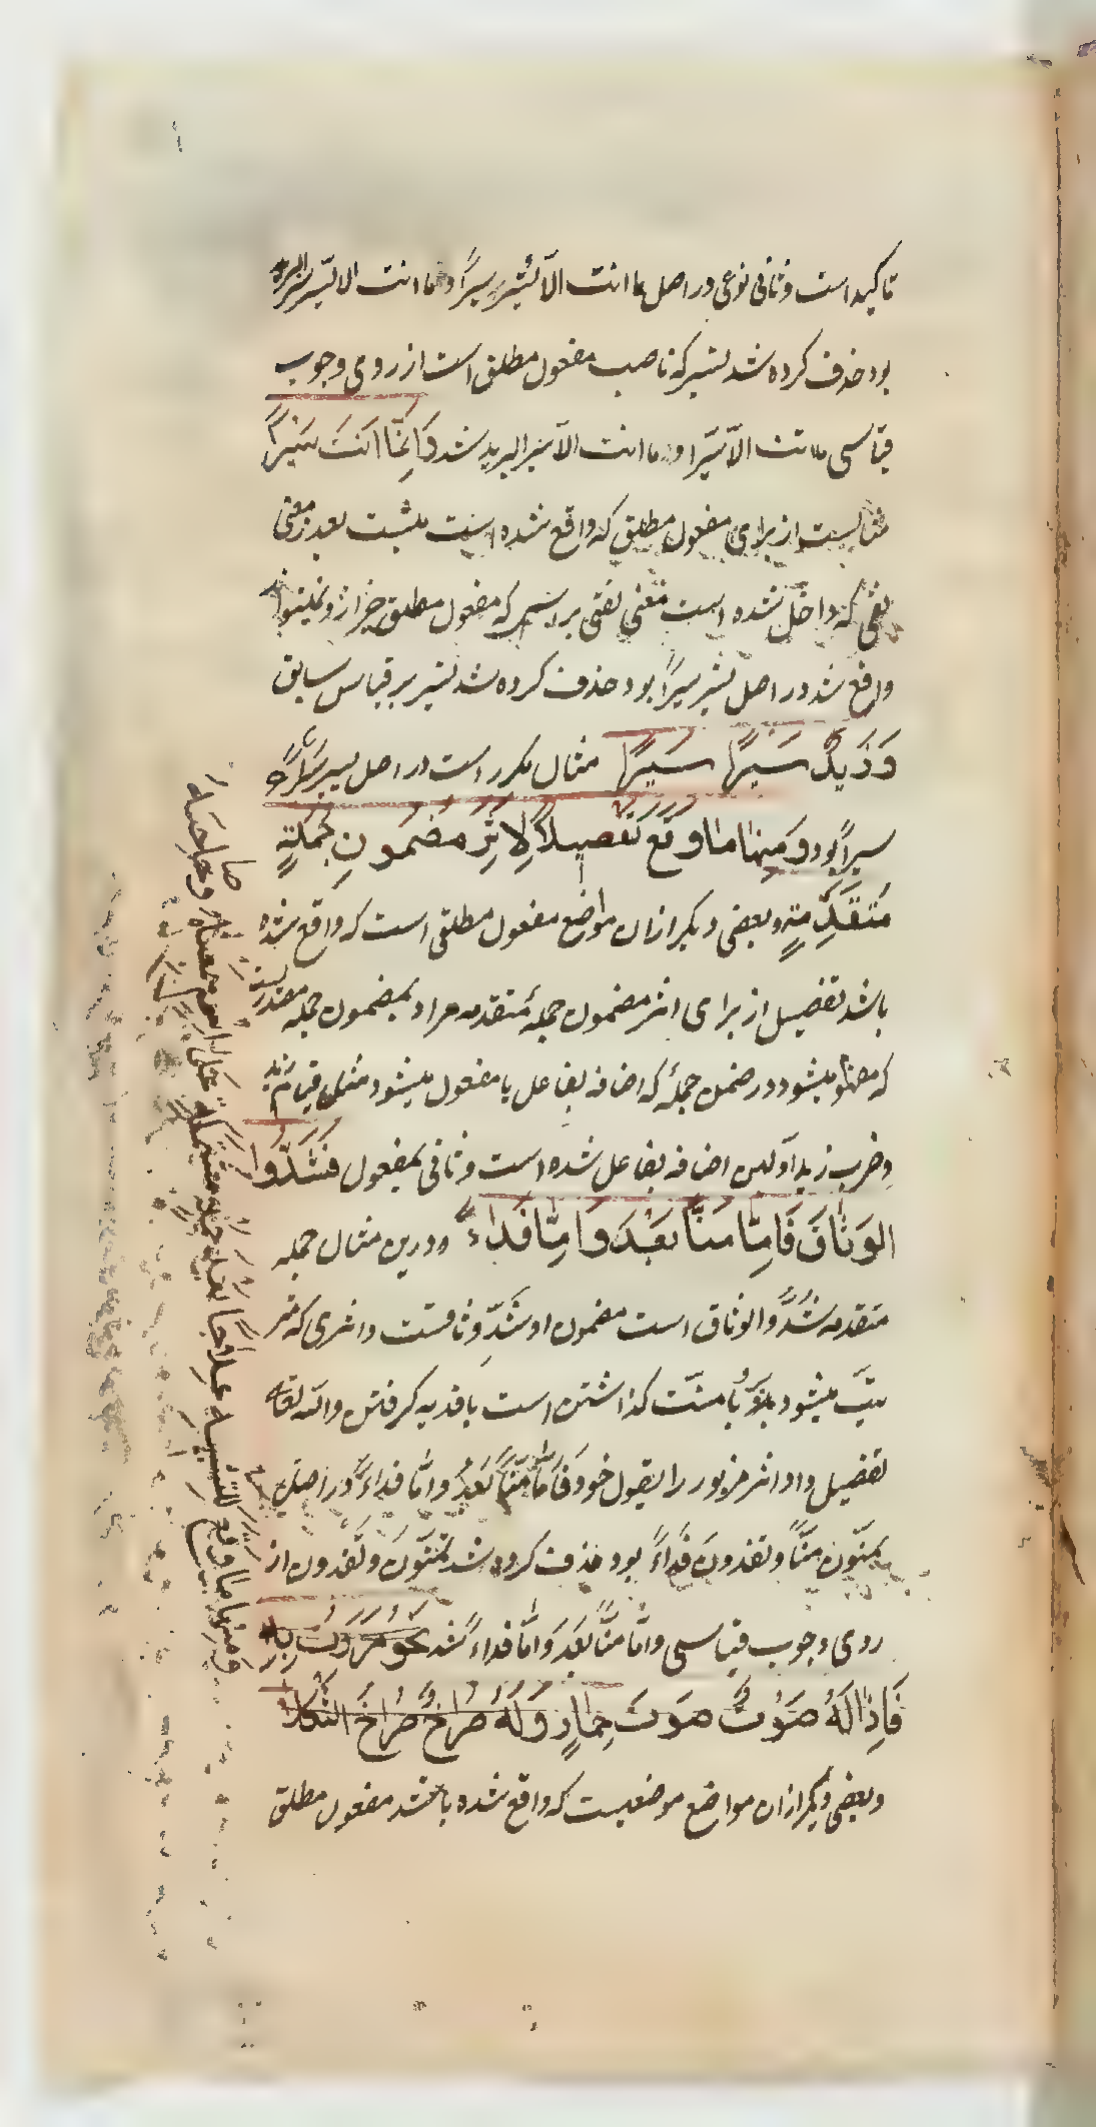 تاکیداست وثانی نوعی دراصل ماانت الّا تسیر سیراً وما انت الا تسیر سیر البرید
بود حذف کرده شد تسیر که ناصب مفعول مطلق است از روی وجوب
قیاسی ماانت الّا سیراً وما انت الّا سیر البرید شد وَاِنَّمَا اَنْتَ سَیْراً
مثالیست از برای مفعول مطلق که واقع شده است مثبت بعد از معنی
نفی که داخل شده است معنی نفی بر اسمی که مفعول مطلق خبر از و نمیتواند
واقع شد در اصل تسیر سیراً بود حذف کرده شد تسیر بر قیاس سابق
وَزَیدٌ سَیْراً سَیْراً مثال مکرر است در اصل یسیر سیراً
سیراً بود وَمِنْها ما وَقَعَ تَفْصیلاً لِاَثَرِ مَضْمُونِ جُمْلَةٍ
مُتَقَدِّمَةٍ وبعضی دیگر ازان مواضع مفعول مطلق است که واقع شده
باشد تفصیل از برای اثر مضمون جملهٔ متقدمه مراد بمضمون جمله مصدریست
که مفهوم میشود در ضمن جملهٔ که اضافه بفاعل یا مفعول میشود مثل قیام زید
وضرب زید اولین اضافه بفاعل شده است وثانی بمفعول فَشُدُّوا
الوَثاقَ فَاِمّا مَنّاً بَعْدُ وَاِمّا فِداءً ودرین مثال جمله
متقدمه شُدُّوا الوثاق است مضمون او شَدِّ وثاقست واثری که متر
تب میشود بر او یا منّت گذاشتن است یا فدیه گرفتن والله تعالی
تفصیل داد اثر مزبور را بقول خود فَاِمّا مَنّاً بَعْدُ وامّا فداءً در اصل
تمنّون منّاً وتفدون فداءً بود حذف کرده شد تمنّون وتفدون از
روی وجوب قیاسی وامّا منّاً بعد وامّا فداءً شد نَحْوُ مَرَرْتُ بِهِ
فَاِذا لَهُ صَوْتٌ صَوْتَ حِمارٍ وَلَهُ صُراخٌ صُراخَ الثَّکْلی
وبعضی دیگر ازان مواضع موضعیست که واقع شده باشد مفعول مطلق
ومنها ما وقع للتشبیه علاجاً بعد جملة مشتملة علی اسم بمعناه وصاحبه